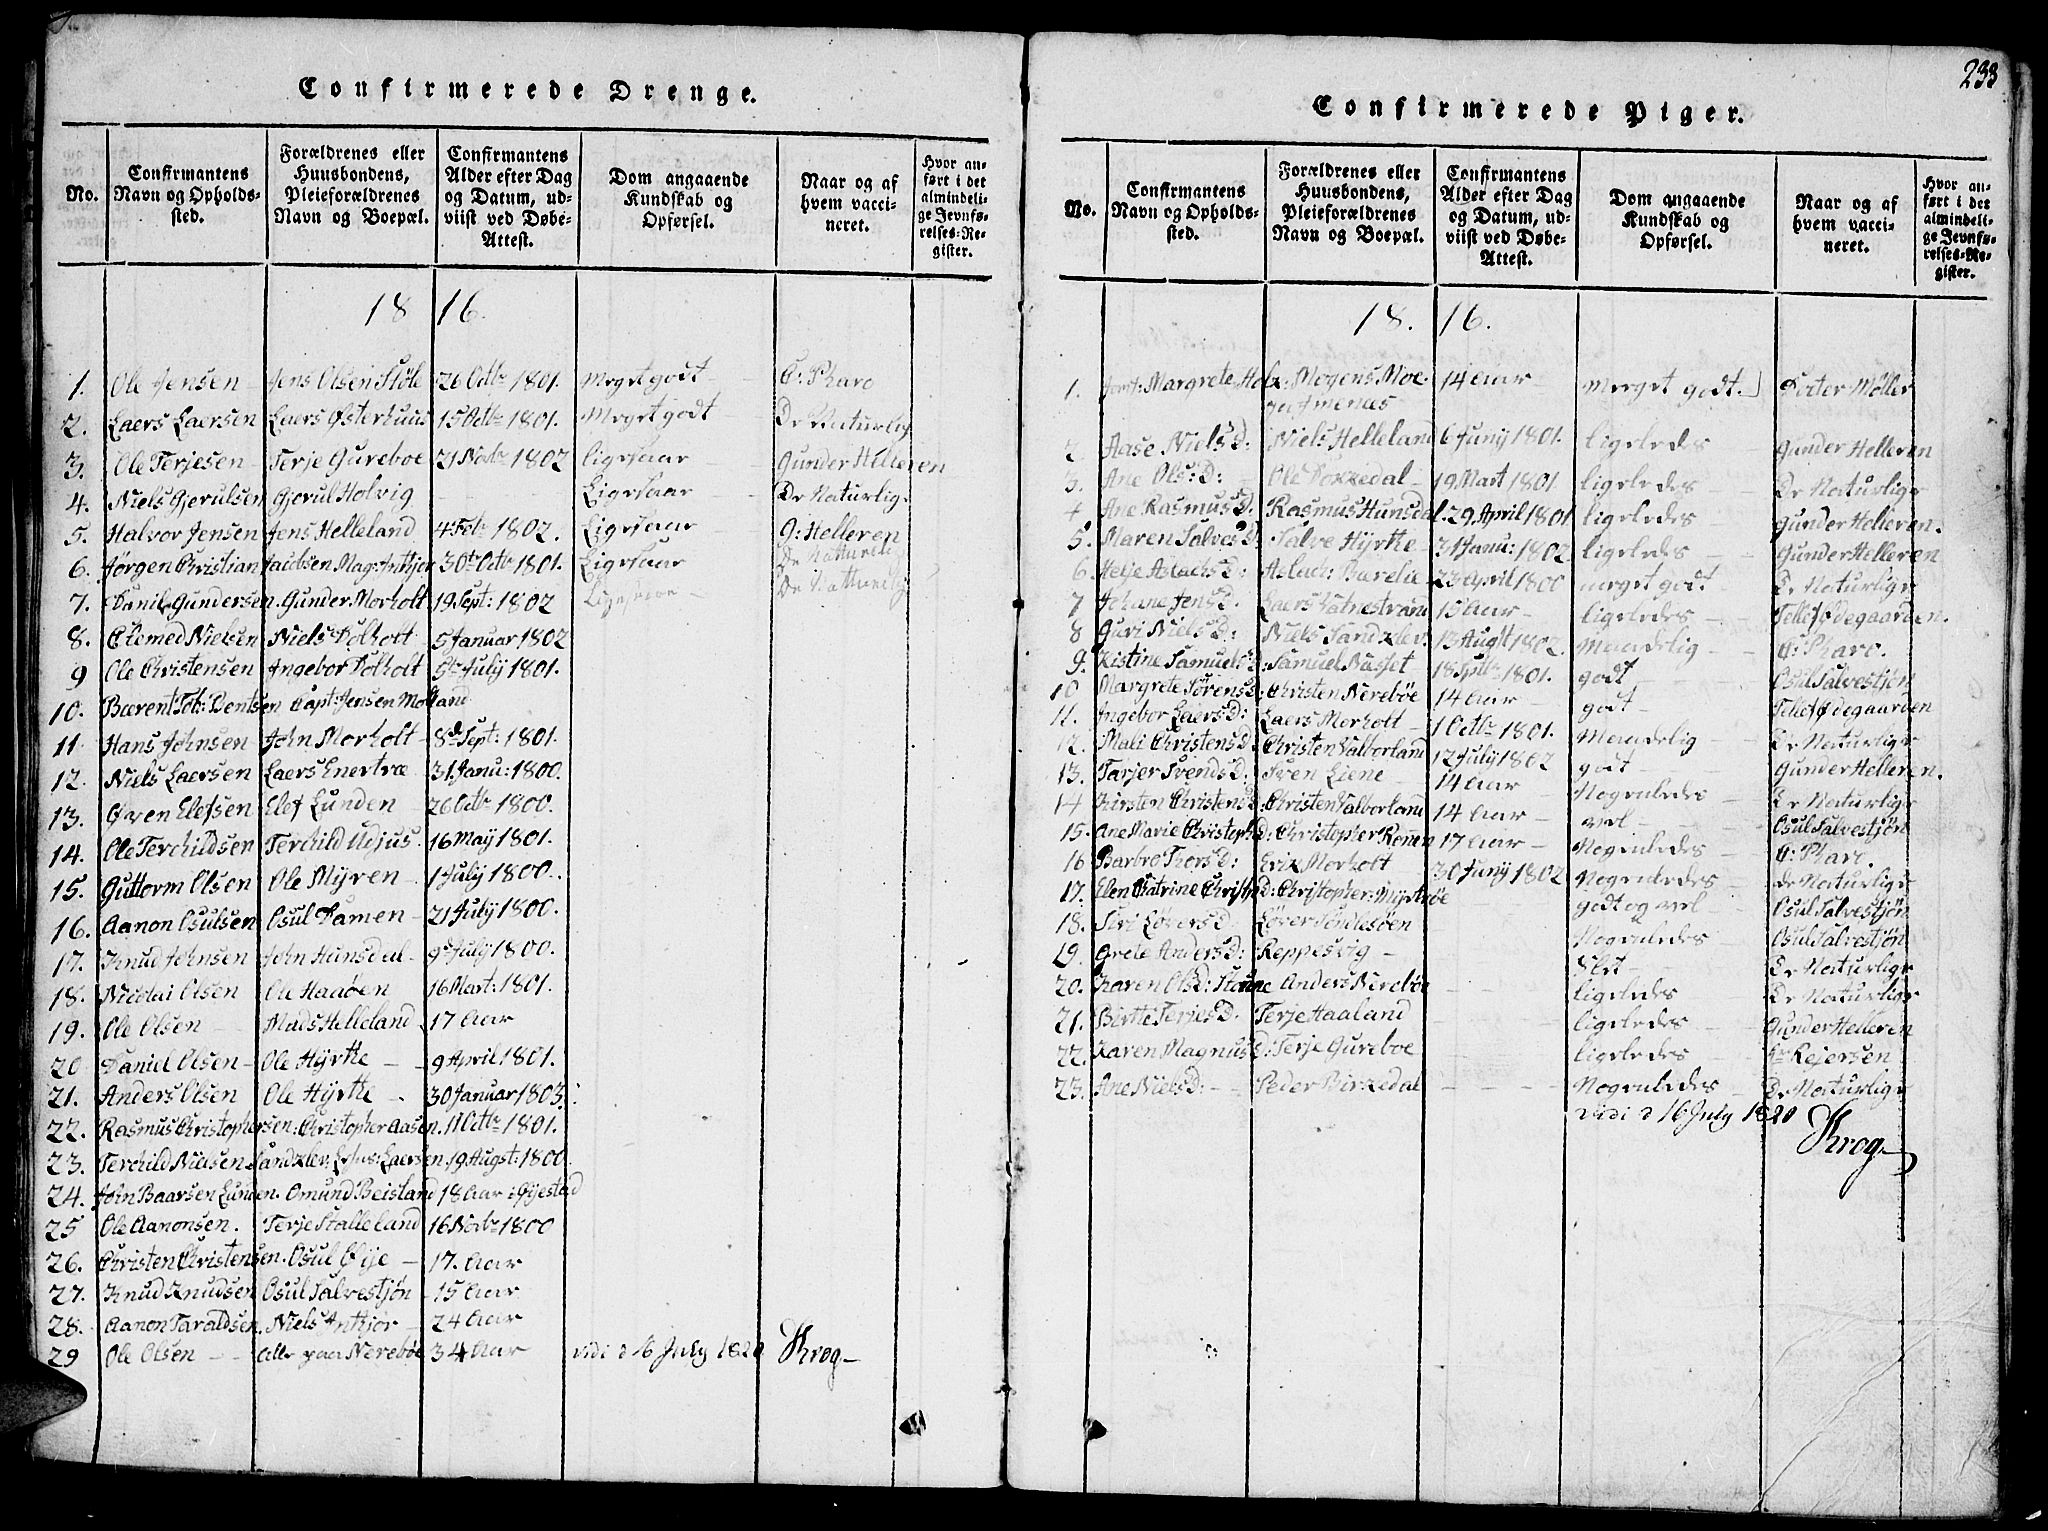 Confirmerede Drenge.
No.
Confirmantens Navn og Opholdssted.
Forældrenes eller Huusbondens, Pleieforældrenes Navn og Boepæl.
Confirmantens Alder efter Dag og Datum, udviist ved Døbe-Attest.
Dom angaaende Kundskab og Opførsel.
Naar og af hvem vaccineret.
Hvor anført i det almindelige Jevnførelses-Register.
18 16.
1. Ole Jensen - Jens Olsen Støle 26 Octbr 1801. Meget godt - C: Pharo
2. Laers Laersen Laers Østerhuus 15 Octbr 1801. Meget godt - De Naturlig
3. Ole Terjesen - Terje Gureboe 21 Novbr 1802 ligesaar - Gunder Helleren
4. Niels Gjerulsen Gjerul Holvig - - - Ligesaar - De Naturlige
5. Halvor Jensen Jens Helleland 4 Febr 1802. Ligesaar G: Helleren
6. Jørgen Christian Jacobsen Mag: Inthjor 30te Octbr 1801. Ligesaar De Naturlig
7. Danil Gundersen. Gunder Morholt 19 Sept: 1802 De Natturlig
8. Clemed Nielsen Niels Dolholt 5 Januar 1802
9 Ole Christensen Ingebor Dolholt 5te July 1801.
10. Bærent Tob: Bentsen Capt: Jensen Molland
11. Hans Johnsen John Morholt - 8d Sept: 1801.
12. Niels Laersen Laers Enertræ 31 Janu: 1800.
13. Even Elefsen Elef Lunden - 26 Octbr 1800.
14. Ole Terchildsen Terchild Udjus 16 May 1801.
15. Guttorm Olsen Ole Myren - 1 July 1800.
16. Aanon Osulsen Osul Damen - 21 July 1800.
17. Knud Johnsen John Hunsdal - 9d July 1800.
18. Nicolai Olsen Ole Haaøen 16 Mart: 1801.
19. Ole Olsen - Mads Helleland 17 Aar
20. Daniel Olsen - Ole Hÿrthe - 9 April 1801.
21. Anders Olsen Ole Hÿrthe - 30 Januar 1803.
22. Rasmus Christophersen: Christopher Aasen. 11 Octbr 1801.
23. Terchild Nielsen Sandklev: Laersen. 19 Augst: 1800.
24. John Baarsen Lunden. Omund Beisland 18 Aar i Øyestad
25 Ole Aanonsen. Terje Stalleland 16 Novbr 1800
26. Christen Christensen. Osul Øije - 17. Aar
27. Knud Knudsen Osul Salvestjøn - 15 Aar
28. Aanon Taraldsen. Niels Inthjor - 24 Aar
29 Ole Olsen - - paa Nerebøe 34 Aar vidi d 16 July 1820 Krog
233
Confirmerede Piger.
No.
Confirmantens Navn og Opholdssted.
Forældrenes eller Huusbondens, Pleieforældrenes Navn og Boepæl.
Confirmantens Alder efter Dag og Datum, udviist ved Døbe-Attest.
Dom angaaende Kundskab og Opførsel.
Naar og af hvem vaccineret.
Hvor anført i det almindelige Jevnførelses-Register.
18. 16.
1. Margrete Mogens Moe 14 Aar - Meget godt. Peter Møller
2 Aase Niels D: Niels Helleland 6 Juny 1801. ligeledes Gunder Helleren
3. Ane Ols: D: - Ole Dokkedal - 19 Mart 1801. ligeledes De Naturlige
4 Ane Rasmus D. Rasmus Hunsdal. 29 April 1801 ligeledes - Gunder Helleren.
5. Maren Salves D: Salve Hÿrthe - 31 Janu: 1802. ligeledes - Gunder Helleren
6. Helje Aslachs D: Aslach: Barelie - 23 April 1800 meget godt De Naturlige
7 Johane Jens D. Laers Salvestrand 15 Aar - ligeledes - Tellef Ødegaarden.
8 Guri Niels D: Niels Sandklev: 13 Augst 1802. Maadelig - C: Pharo.
9. Kistine Samuels D: Samuel Nasset - 18 Septbr 1801. godt - Osul Salvestjøn
10 Margrete Sørens D: Christen Nerebøe - 14 Aar - godt - Tellef Ødegaarden
11. Ingebor Laers D: Laers Morholt - 1 Octbr 1801. Maadelig - De Naturlige
12. Mali Christens D: Christen Valborland 12 July 1802 godt - Gunder Helleren.
13. Tarjer Svends D. Sven Liene - 14 Aar - Nogenledes - De Naturlige
14 Kirsten Christens D: Christen Valborland 14 Aar - vel - Osul Salvestjøn
15. Ane Marie Christoph D: Christopher Rønen 17 Aar - Nogenledes - C: Pharo.
16 Barbro Thors D: Erik Morholt - 30 Juny 1802 Nogenledes - De Naturlige
17. Elen Catrine Christ D: Christopher: Myrebøe godt og vel - Osul Salvestjøn
18. Siri Løvers D. Løver Søndlesøen Nogenledes Osul Salvestjøn
19. Grete Anders D: Reppesvig - Slet - De Naturlige
20. Karen Ols D: Anders Nerebøe ligeledes De Naturlige
21. Birtte Terjes D. Terje Haaland ligeledes Gunder Helleren
22. Karen Magnus D: Terje Gureboe ligeledes Hr Rejersen
23. Ane Niels D: - - Peder Birkedal - - - Nogenledes - De Naturlige
vidi d 16 July 1820
Krog